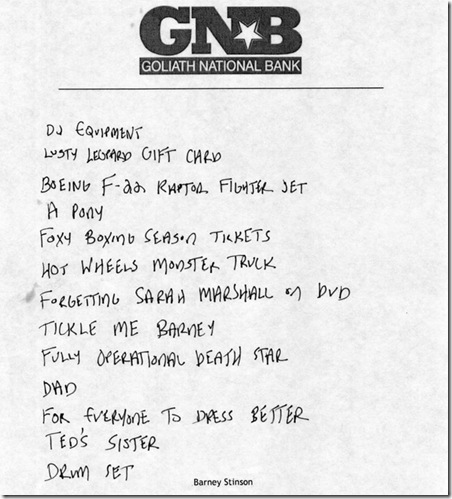 GNB
GOLIATH NATIONAL BANK
DJ EQUIPMENT
LUSTY LEOPARD GIFT CARD
BOEING F-22 RAPTOR FIGHTER JET
A PONY
FOXY BOXING SEASON TICKETS
HOT WHEELS MONSTER TRUCK
FORGETTING SARAH MARSHALL on DVD
TICKLE ME BARNEY
FULLY OPERATIONAL DEATH STAR
DAD
FOR EVERYONE TO DRESS BETTER
TED'S SISTER
DRUM SET
Barney Stinson